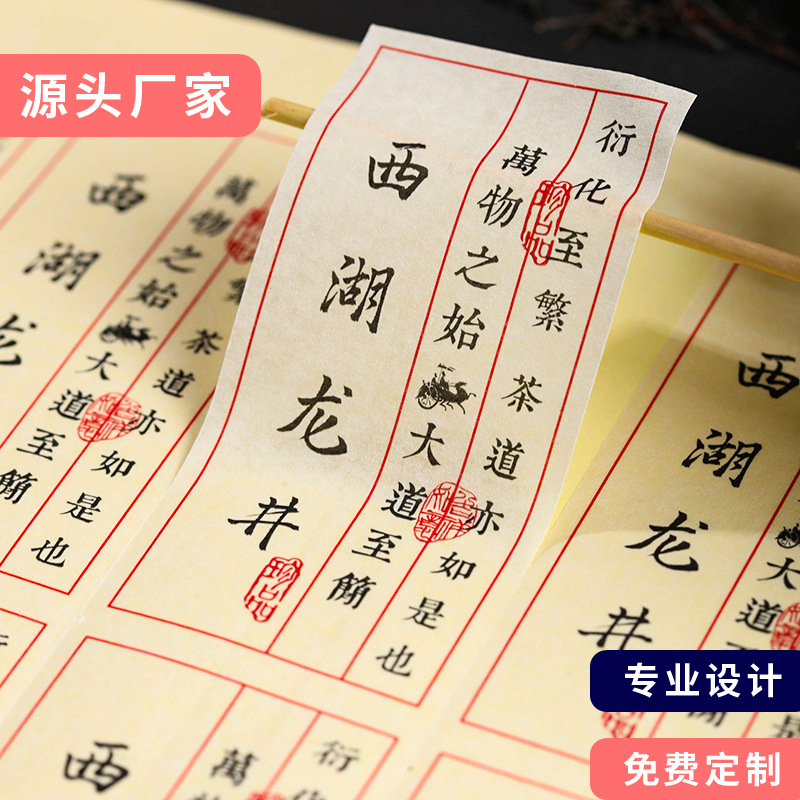 源头厂家
西湖龙井
珍品
萬物之始 大道至簡
衍化至繁 茶道亦如是也
珍品
西湖龙
萬物之始 大道至簡
繁 茶道亦如是也
西湖龙井
大道
是
西
萬
衍化
专业设计
免费定制